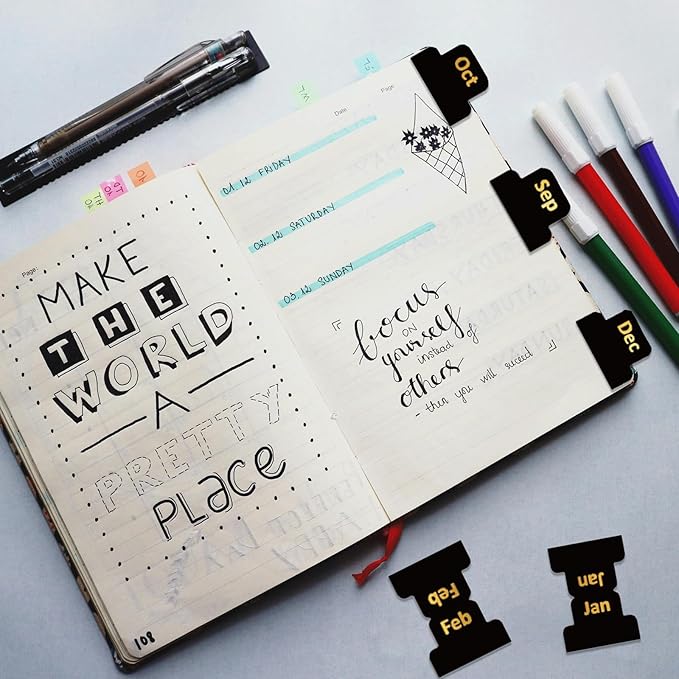 Page:
MAKE
THE
WORLD
A
PRETTY
PLACE
108
Date:
Page:
01. 12 FRIDAY
02. 12 SATURDAY
03. 12 SUNDAY
focus
on
yourself
instead of
others
- then you will succeed
Oct
Sep
Dec
Feb
Feb
Jan
Jan